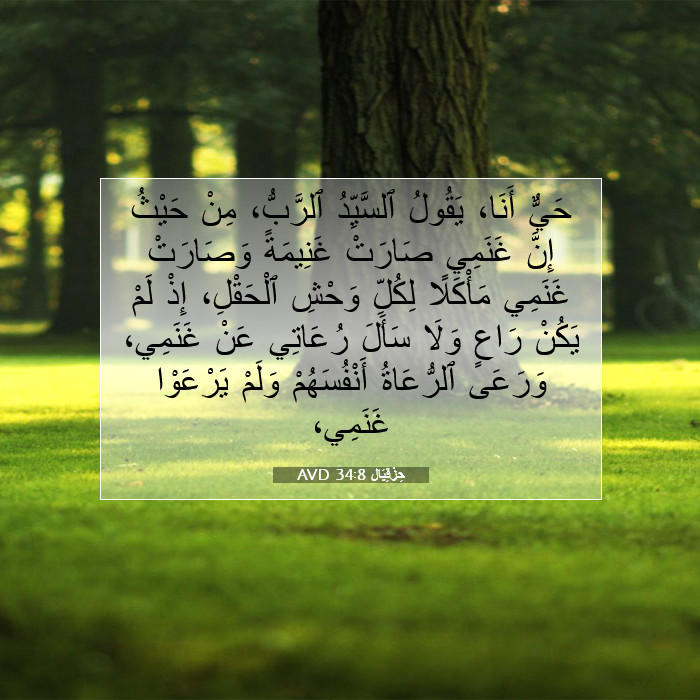 حَيٌّ أَنَا، يَقُولُ ٱلسَّيِّدُ ٱلرَّبُّ، مِنْ حَيْثُ
إِنَّ غَنَمِي صَارَتْ غَنِيمَةً وَصَارَتْ
غَنَمِي مَأْكَلًا لِكُلِّ وَحْشِ ٱلْحَقْلِ، إِذْ لَمْ
يَكُنْ رَاعٍ وَلَا سَأَلَ رُعَاتِي عَنْ غَنَمِي،
وَرَعَى ٱلرُّعَاةُ أَنْفُسَهُمْ وَلَمْ يَرْعَوْا
غَنَمِي،
حِزْقِيَال 34:8 AVD